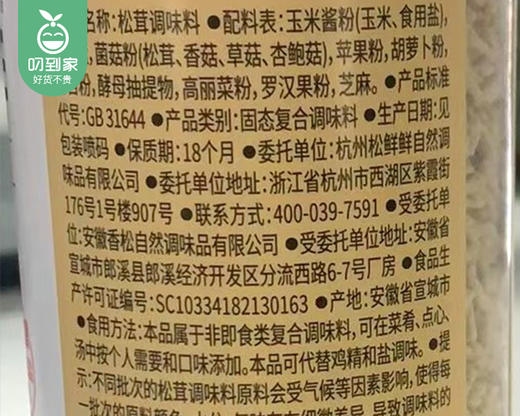 叨到家
好货不贵
名称:松茸调味料 ●配料表:玉米酱粉(玉米、食用盐),
菌菇粉(松茸、香菇、草菇、杏鲍菇),苹果粉,胡萝卜粉,
粉,酵母抽提物,高丽菜粉,罗汉果粉,芝麻。●产品标准
代号:GB 31644 ●产品类别:固态复合调味料 ●生产日期:见
包装喷码 ●保质期:18个月 ●委托单位:杭州松鲜鲜自然调
味品有限公司 ●委托单位地址:浙江省杭州市西湖区紫霞街
176号1号楼907号 ●联系方式:400-039-7591 ●受委托单
位:安徽香松自然调味品有限公司 ●受委托单位地址:安徽省
宣城市郎溪县郎溪经济开发区分流西路6-7号厂房 ●食品生
产许可证编号:SC10334182130163 ●产地:安徽省宣城市
●食用方法:本品属于非即食类复合调味料,可在菜肴、点心、
汤中按个人需要和口味添加。本品可代替鸡精和盐调味。●提
示:不同批次的松茸调味料原料会受气候等因素影响,使得每
一批次的原料颜色